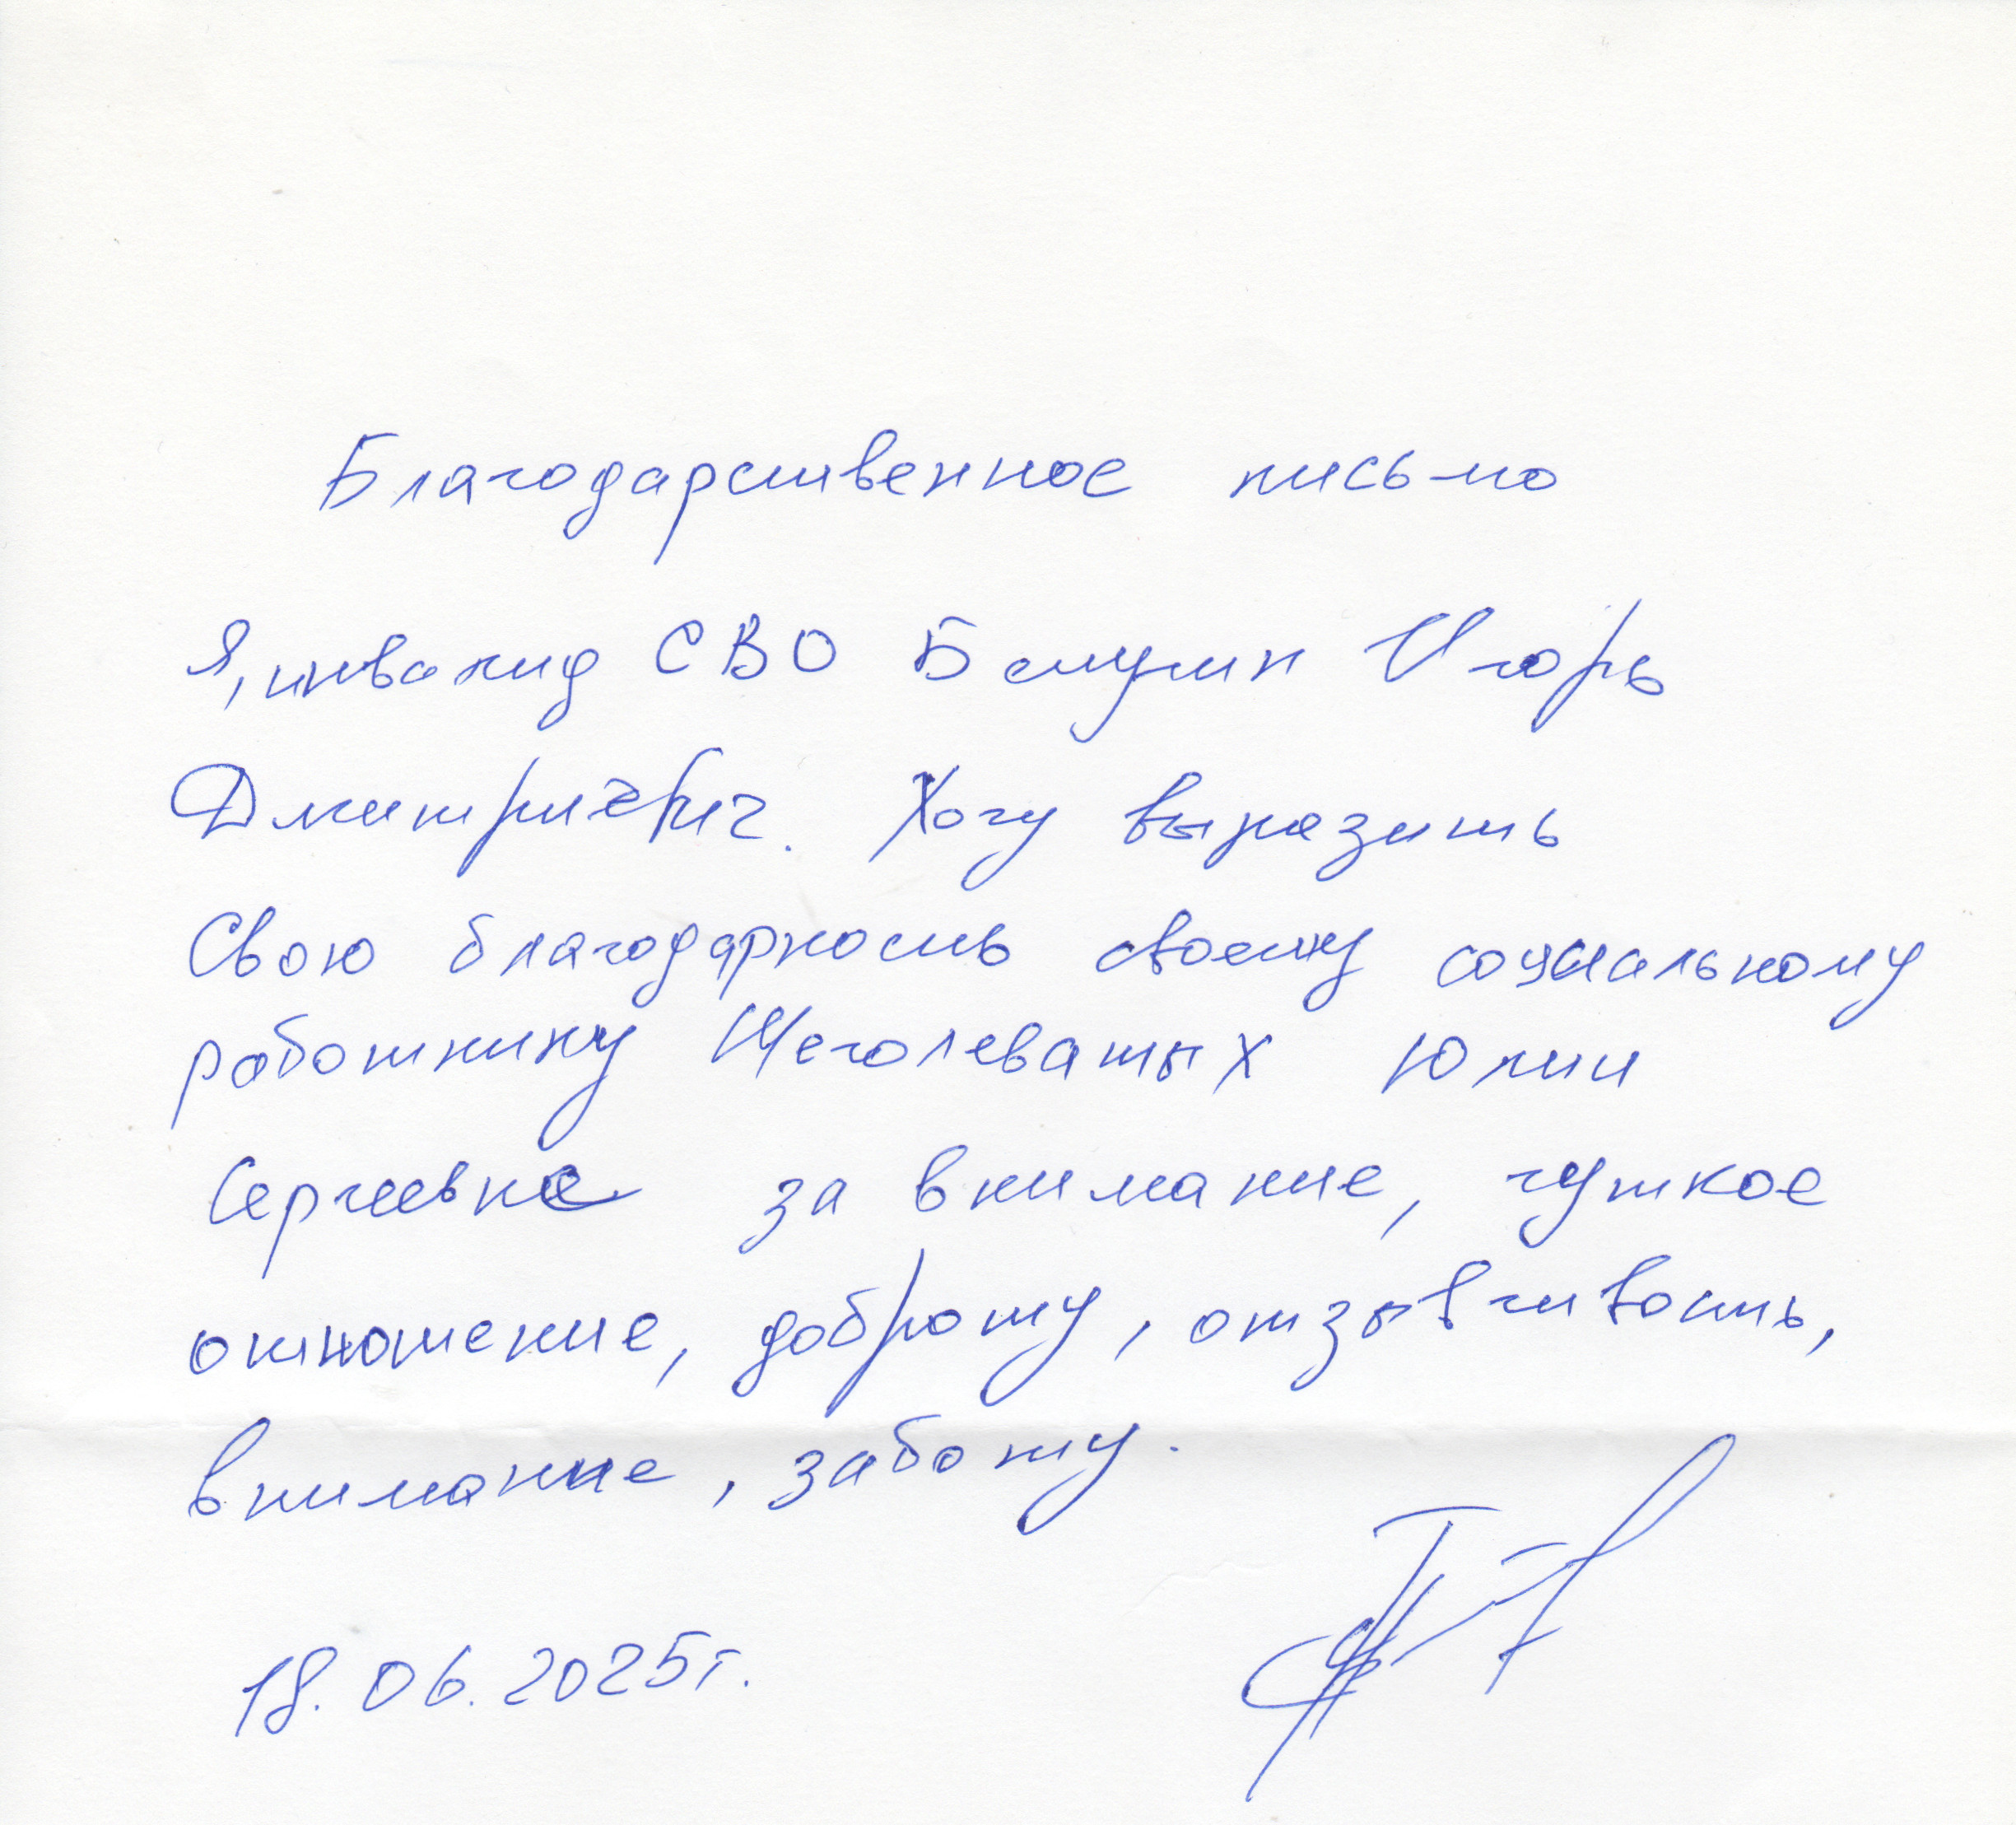 Благодарственное письмо
Я, инвалид СВО Игорь
Дмитриевич. Хочу выразить
Свою благодарность своему социальному
работнику Щеголеватых Юлии
Сергеевне за внимание, чуткое
отношение, доброту, отзывчивость,
внимание, заботу.
18.06.2025г.